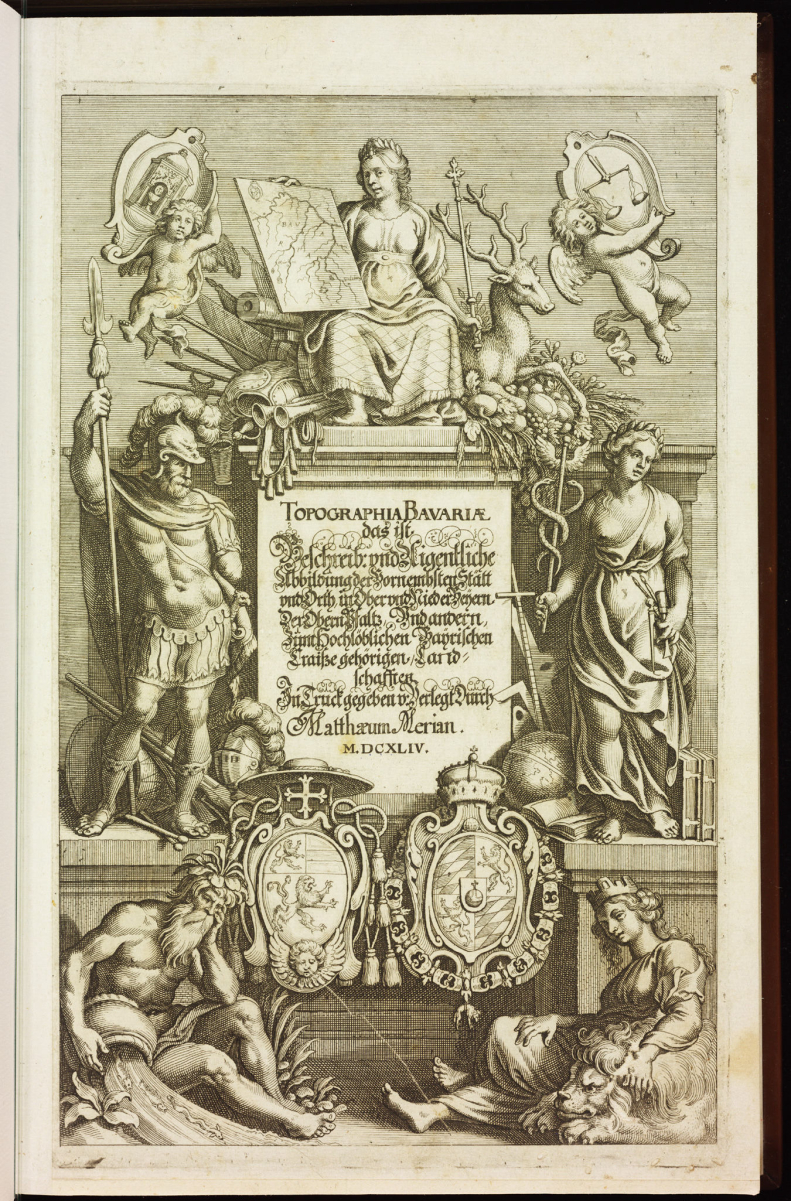 TOPOGRAPHIA BAVARIÆ
das ist
Beschreib: vnd Aigentliche
Abbildung der Vornembsten Stätt
vnd Orth, in Ober vnd Nieder Beyern
Der Obern Pfaltz, Vnd andern,
Zum Hochlöblichen Bayrischen
Craiße gehörigen, Land-
schafften
In Truck gegeben v: Verlegt Durch
Matthæum Merian.
M.DCXLIV.